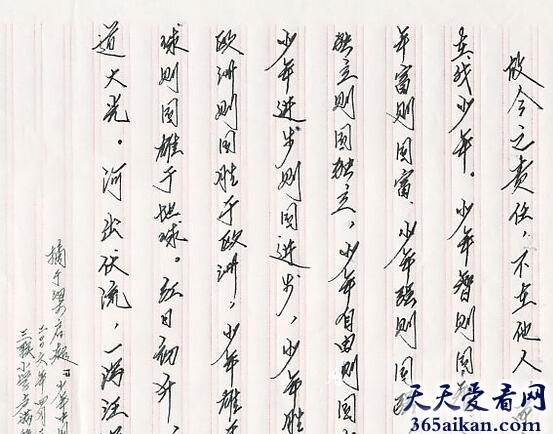 故今之责任，不在他人
在我少年。少年智则国
年富则国富、少年强则国强
独立则国独立，少年自由则国
少年进步则国进步，少年胜
欧洲则国胜于欧洲，少年雄
球则国雄于地球。红日初升，
道大光。河出伏流，一泻汪
摘于梁启超《少年中国
二00六年四月
三联小学
天天爱看网
365aikan.com